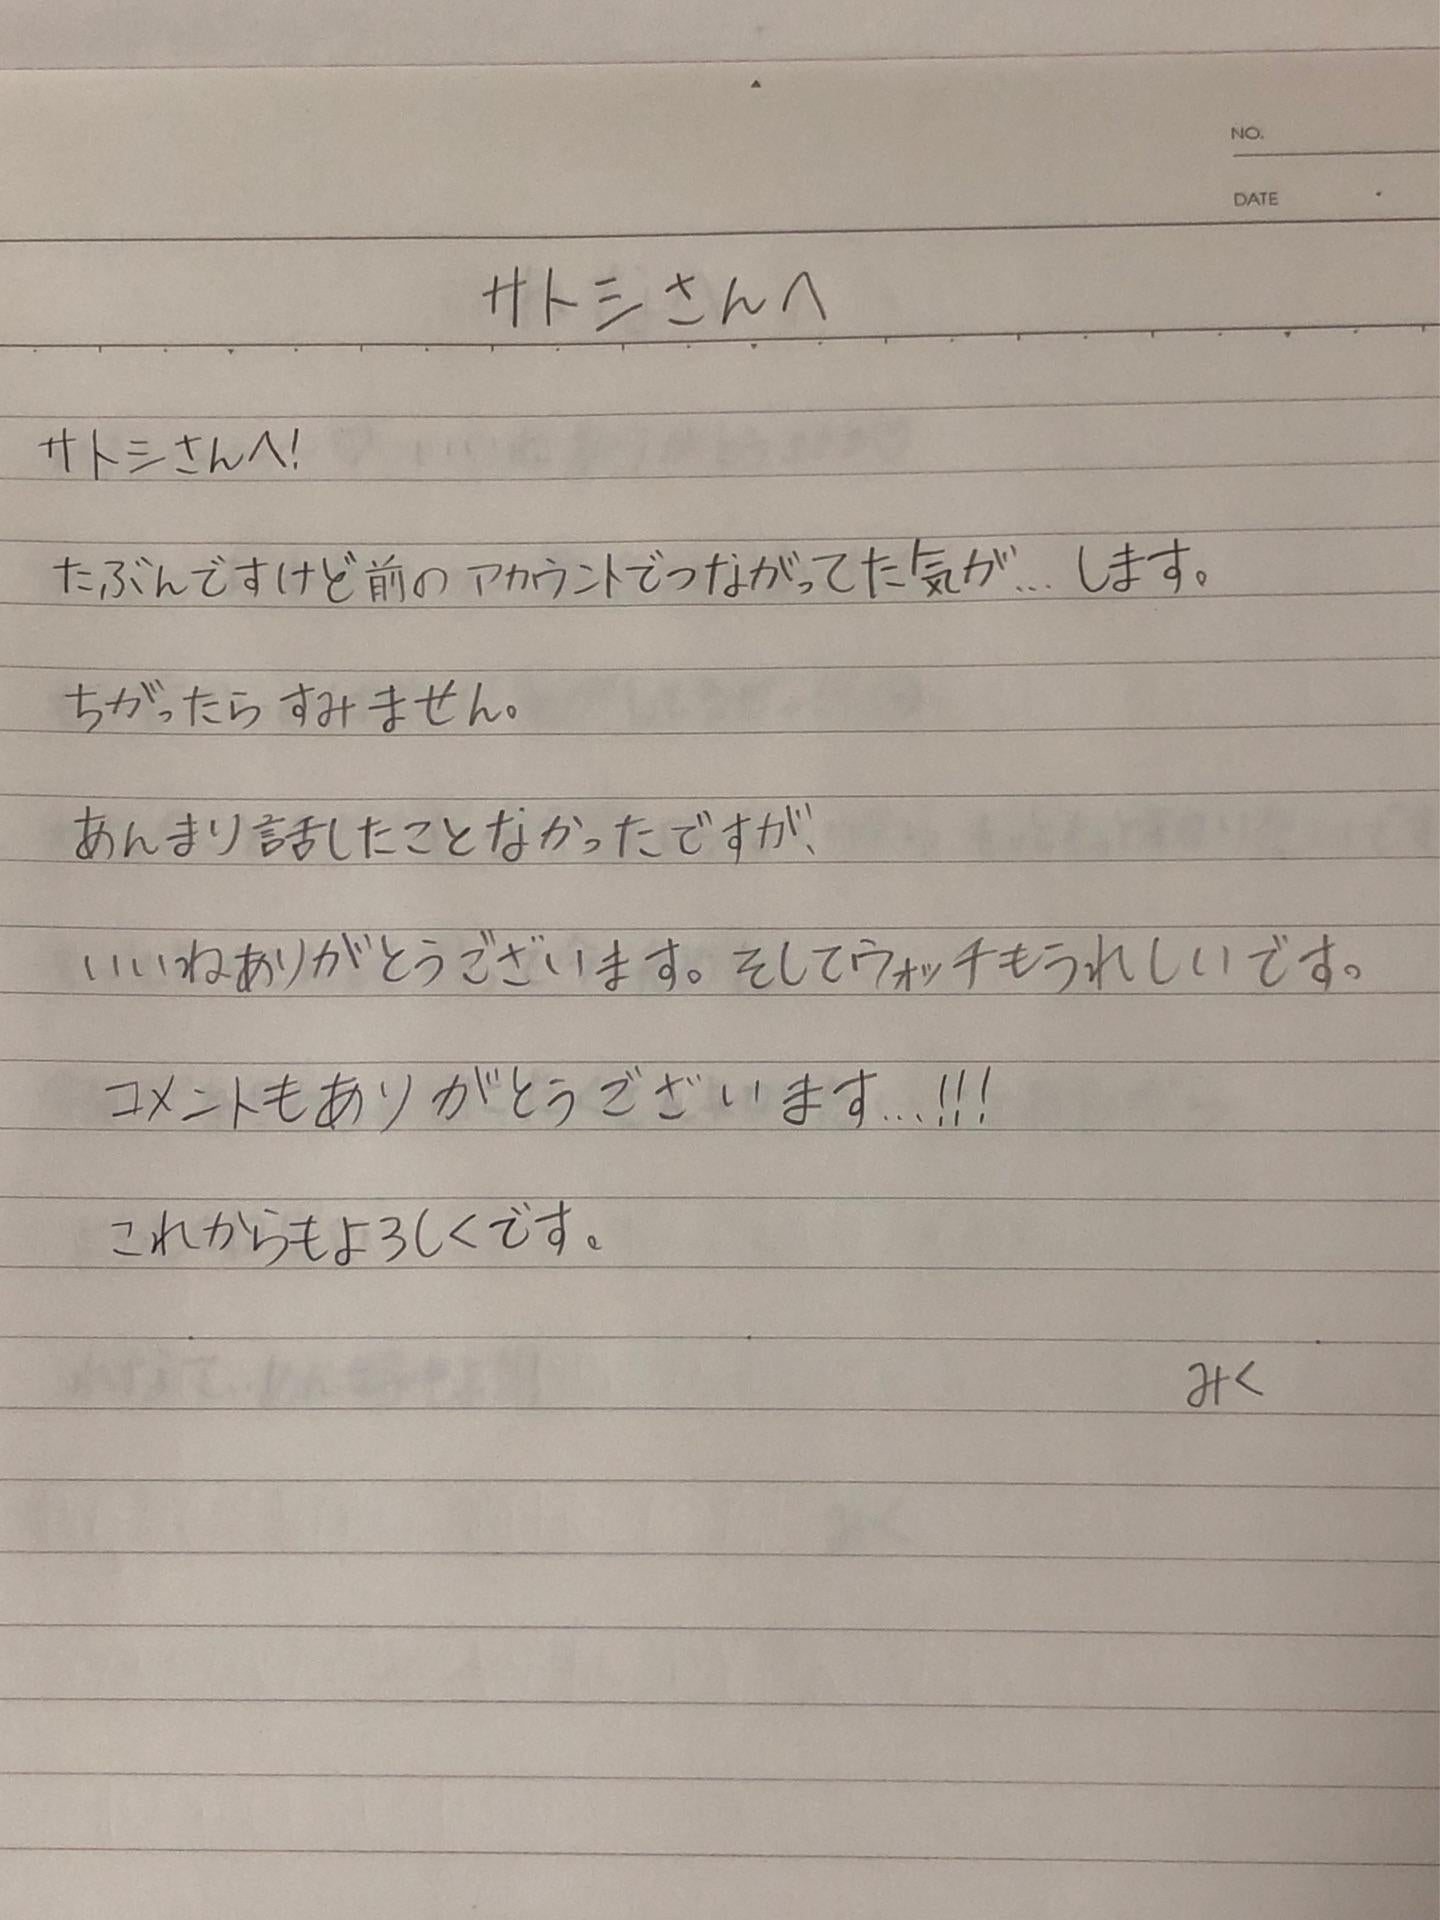 NO.
DATE
サトシさんへ
サトシさんへ!
たぶんですけど前のアカウントでつながってた気が…します。
ちがったらすみません。
あんまり話したことなかったですが、
いいねありがとうございます。そしてウォッチもうれしいです。
コメントもありがとうございます…!!!
これからもよろしくです。
みく